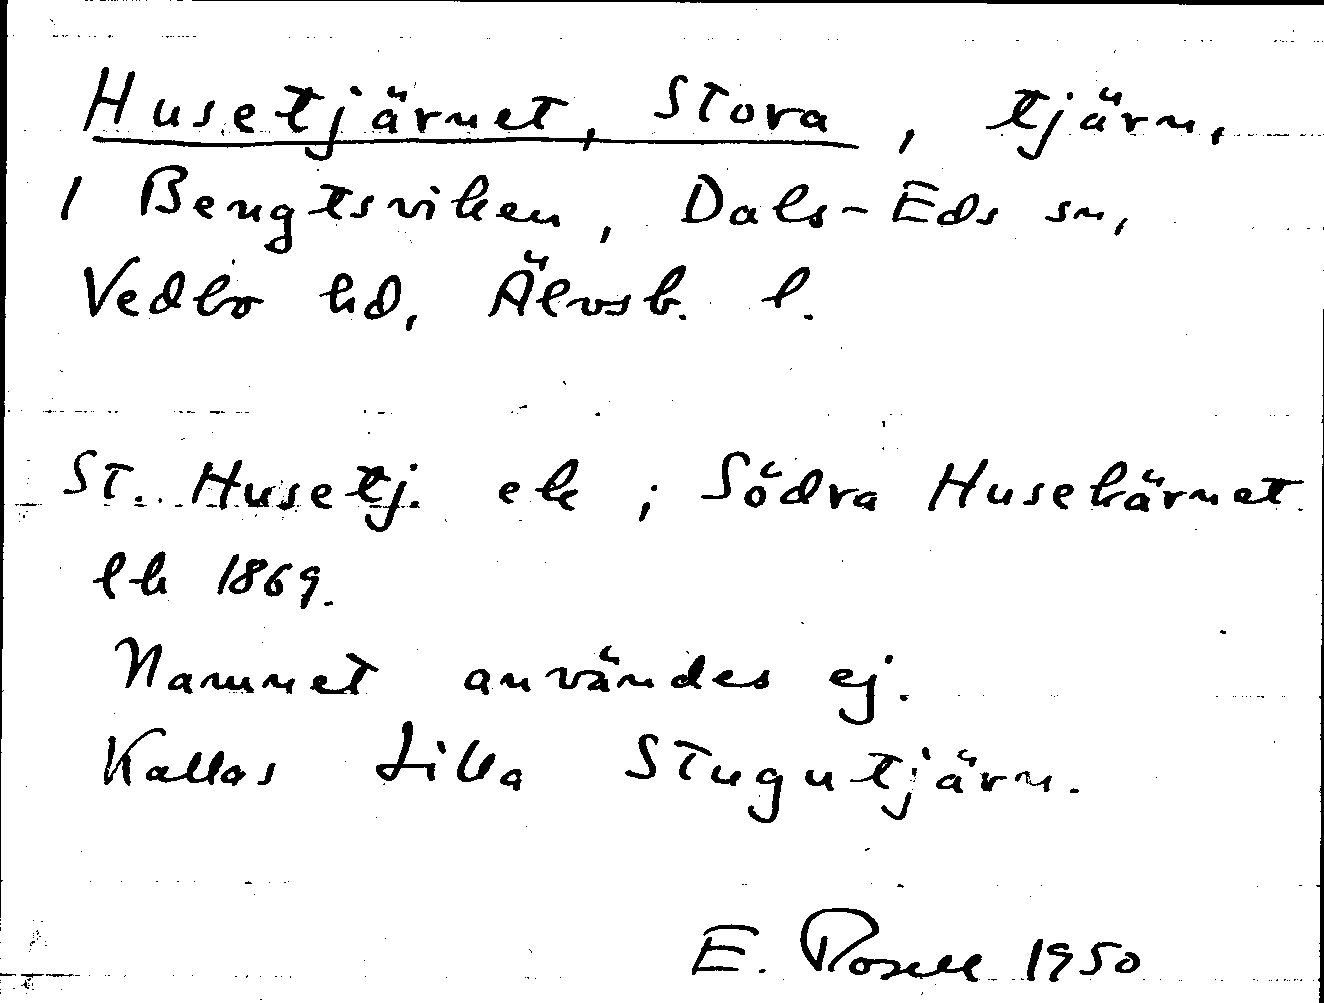 Husetjärnet, Stora, tjärn,
1 Bengtsviken, Dals-Eds sn,
Vedbo hd, Älvsb. l.
St. Husetj. ek; Södra Husekärnet
lh 1869.
Namnet användes ej.
Kallas Lilla Stugutjärn.
E. Rosell 1950